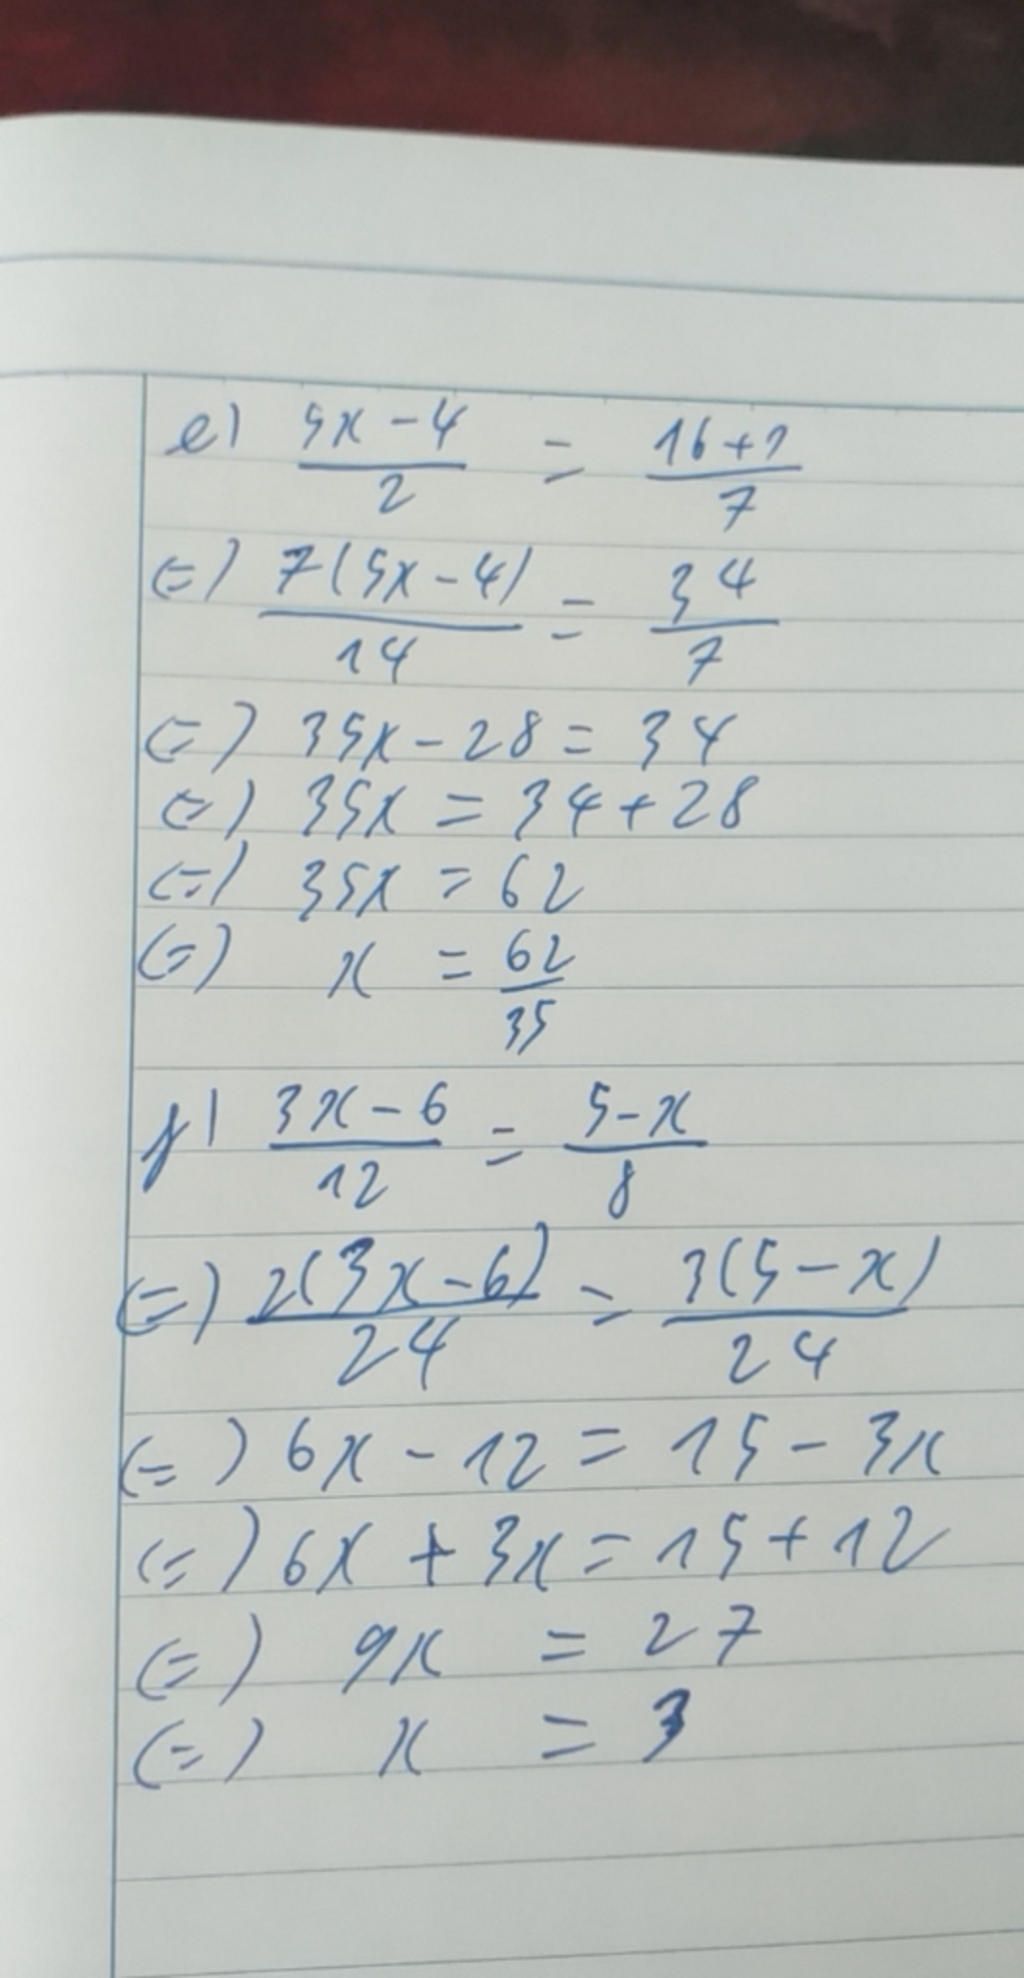 e) \frac{5x-4}{2} = \frac{16+1}{7}
(=) \frac{7(5x-4)}{14} = \frac{34}{7}
(=) 35x-28=34
(=) 35x=34+28
(=) 35x=62
(=) x = \frac{62}{35}
f) \frac{3x-6}{12} = \frac{5-x}{8}
(=) \frac{2(3x-6)}{24} = \frac{3(5-x)}{24}
(=) 6x-12=15-3x
(=) 6x+3x=15+12
(=) 9x = 27
(=) x = 3